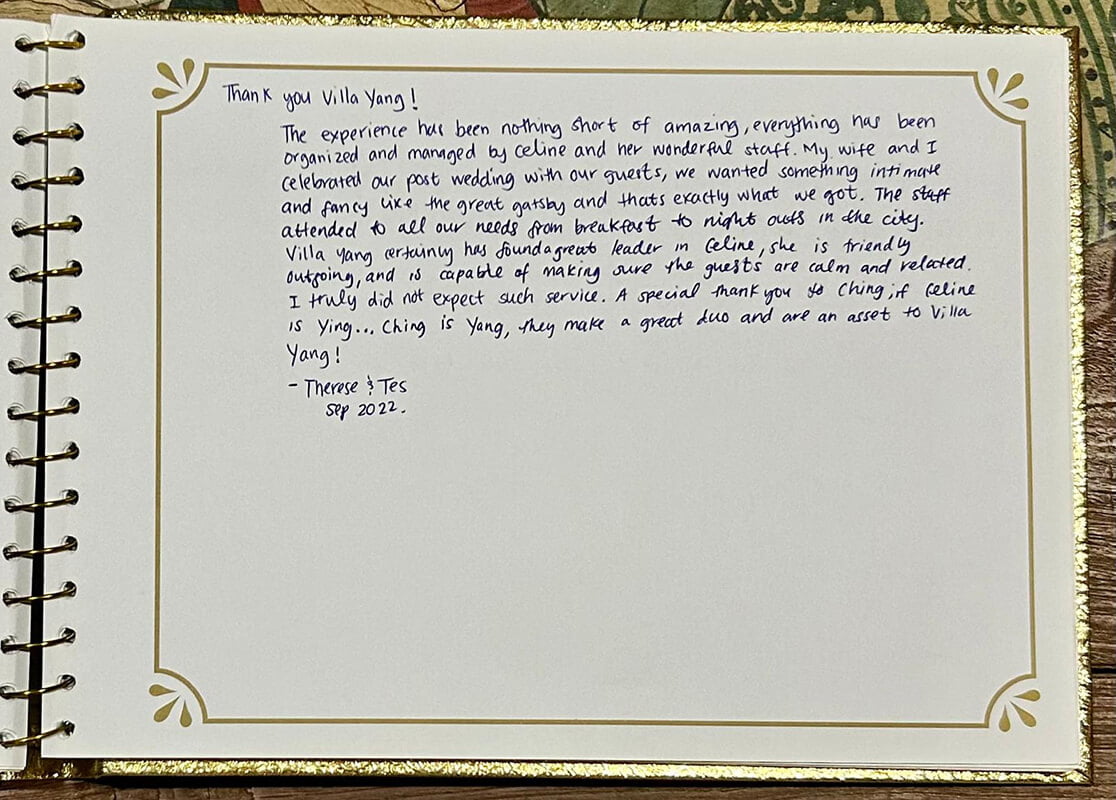 Thank you Villa Yang!
The experience has been nothing short of amazing, everything has been
organized and managed by Celine and her wonderful staff. My wife and I
celebrated our post wedding with our guests, we wanted something intimate
and fancy like the great gatsby and thats exactly what we got. The staff
attended to all our needs from breakfast to night outs in the city.
Villa Yang certainly has found a great leader in Celine, she is friendly
outgoing, and is capable of making sure the guests are calm and relaxed.
I truly did not expect such service. A special thank you to Ching, if Celine
is Ying... Ching is Yang, they make a great duo and are an asset to Villa
Yang!
- Therese & Tes
Sep 2022.